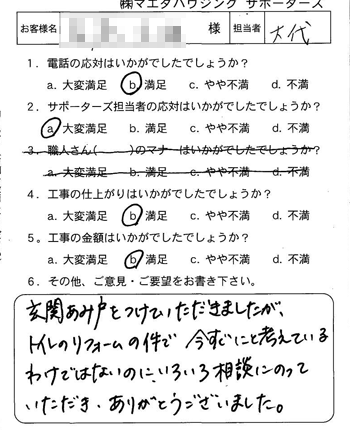 ㈱マエダハウジング サポーターズ
お客様名 様 担当者 大代
1．電話の応対はいかがでしたでしょうか？
a. 大変満足 b. 満足 c. やや不満 d. 不満
2．サポーターズ担当者の応対はいかがでしたでしょうか？
a. 大変満足 b. 満足 c. やや不満 d. 不満
3．職人さん( )のマナーはいかがでしたでしょうか？
a. 大変満足 b. 満足 c. やや不満 d. 不満
4．工事の仕上がりはいかがでしたでしょうか？
a. 大変満足 b. 満足 c. やや不満 d. 不満
5．工事の金額はいかがでしたでしょうか？
a. 大変満足 b. 満足 c. やや不満 d. 不満
6．その他、ご意見・ご要望をお書き下さい。
玄関あみ戸をつけていただきましたが、
トイレのリフォームの件で 今すぐにと考えている
わけではないのに、いろいろ相談にのって
いただき、ありがとうございました。